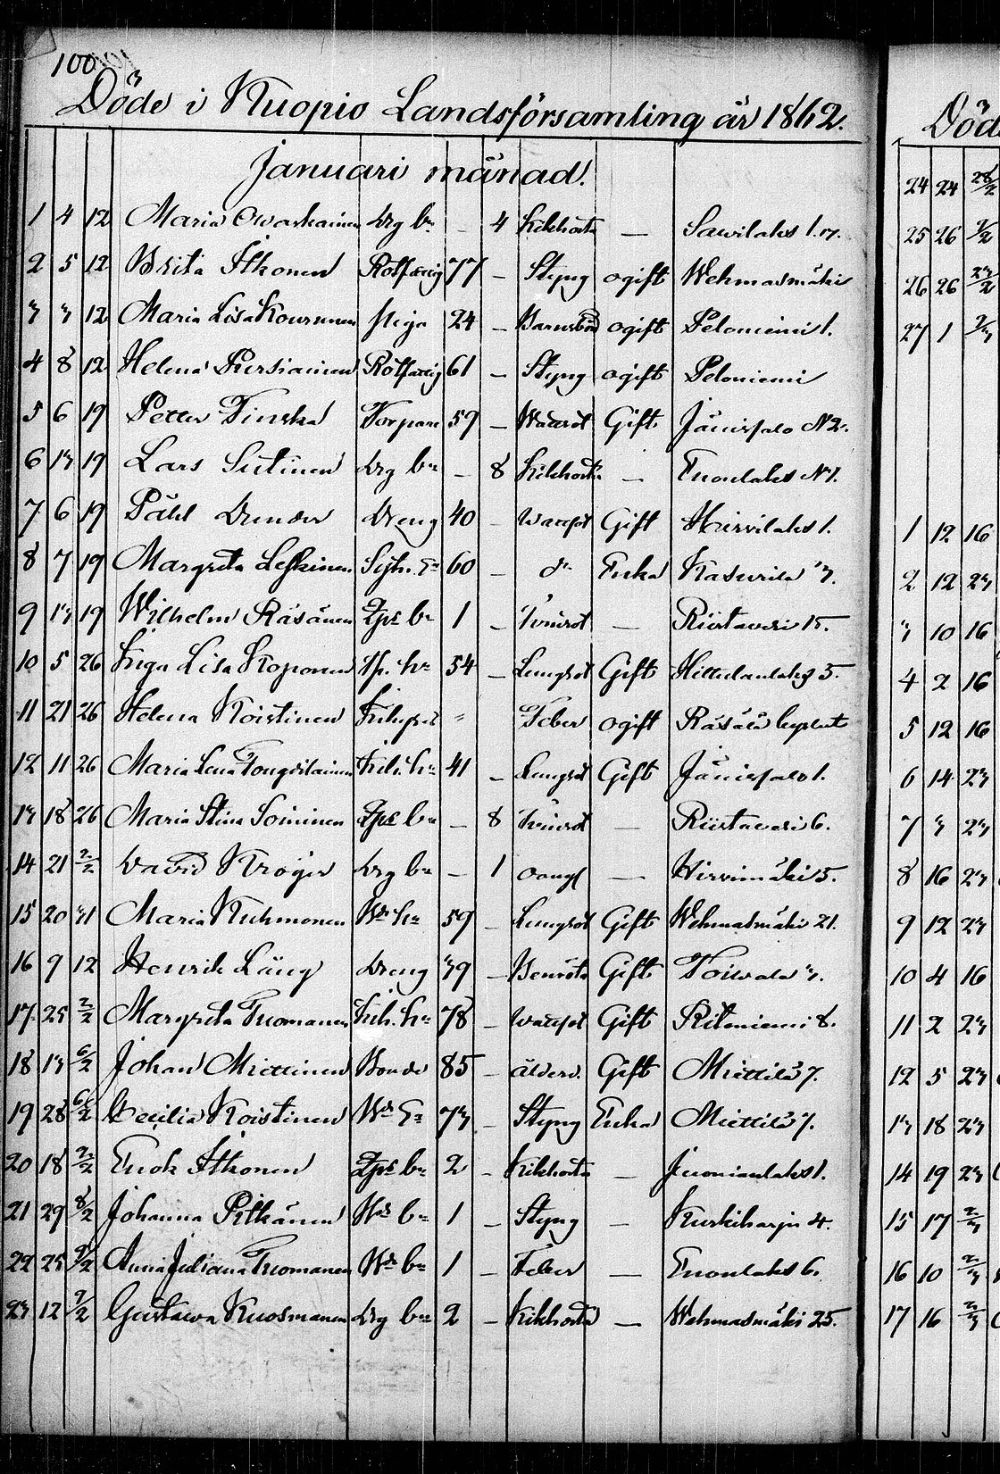 100
Döde i Kuopio Landsförsamling år 1862.
Januari månad.
1 4 12 Maria Owaskainen Drg bn - 4 Kikhosta — Sawilaks 17.
2 5 12 Brita Itkonen Rotfattig 77 - Styng ogift Wehmasmäki
3 3 12 Maria Lisa Piga 24 - Barnsbörd ogift Peloniemi 1.
4 8 12 Helena Rotfattig 61 - Styng ogift Peloniemi
5 6 19 Petter Torpare 59 - Wattsot Gift Jänisfalo N 2.
6 13 19 Lars Sutinen Drg bn - 8 Kikhosta — Enonlaks N 1.
7 6 19 Påhl Dunder Dreng 40 - Wattsot Gift Hirvilaks 1.
8 7 19 Margreta Leskinen 60 - do Enka Kasurila 3.
9 13 19 Wilhelm Räsänen bn 1 - — Riistavesi 15.
10 5 26 Inga Lisa Koponen hu 54 - Lungsot Gift 5.
11 21 26 Helena Koistinen " Feber ogift Räsälä
12 11 26 Maria Lena hu 41 - Lungsot Gift Jänisfalo 1.
13 18 26 Maria Stina Soininen bn - 8 — Riistavesi 6.
14 21 2/2 David Kröger Drg bn - 1 oangf — Hirvimäki 5.
15 20 31 Maria Kuhmonen hu 59 - Lungsot Gift Wehmasmäki 21.
16 9 12 Henrik Läng Dreng 39 - Gift Toiwala 3.
17 25 2/2 Margreta Tuomanen hu 78 - Wattsot Gift Ritoniemi 8.
18 13 6/2 Johan Miettinen Bonde 85 - ålderd. Gift Miettilä 7.
19 28 6/2 Cecilia Koistinen 73 - Styng Enka Miettilä 7.
20 18 2/2 Enok Itkonen bn 2 - Kikhosta — Juonionlaks 1.
21 29 8/2 Johanna Pitkänen bn 1 - Styng — Kurkiharju 4.
22 25 9/2 Anna Juliana Tuomanen bn 1 - Feber — Enonlaks 6.
23 12 2/2 Gustawa Kuosmanen Drg bn 2 - Kikhosta — Wehmasmäki 25.
Död
24 24 28/2
25 26 2/2
26 26 23/2
27 1 2/3
1 12 16
2 12 23
3 10 16
4 2 16
5 12 16
6 14 23
7 3 23
8 16 23
9 12 23
10 4 16
11 2 23
12 5 23
13 18 23
14 19 23
15 17 2/3
16 10 2/3
17 16 2/3